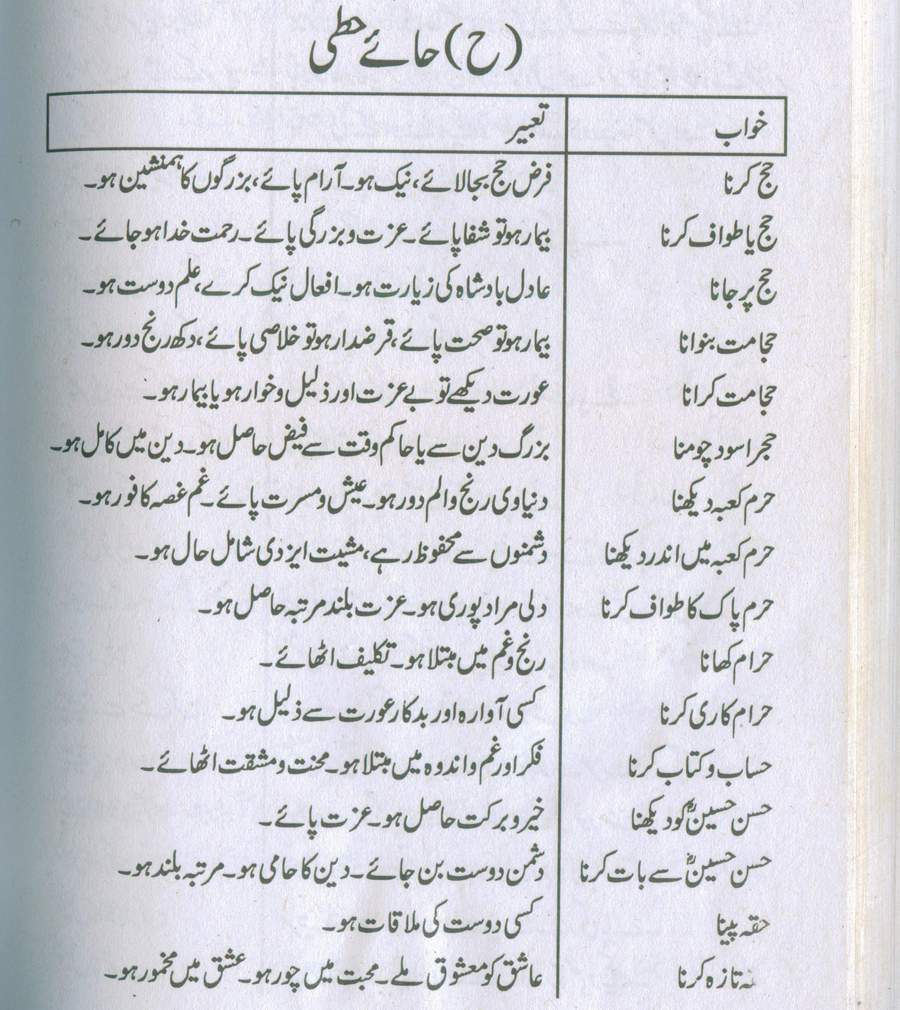 (ح) حائے حطی
خواب تعبیر
حج کرنا فرض حج بجالائے، نیک ہو۔ آرام پائے، بزرگوں کا ہمنشین ہو۔
حج یا طواف کرنا بیمار ہو تو شفا پائے۔ عزت و بزرگی پائے۔ رحمت خدا ہو جائے۔
حج پر جانا عادل بادشاہ کی زیارت ہو۔ افعال نیک کرے، علم دوست ہو۔
حجامت بنوانا بیمار ہو تو صحت پائے، قرضدار ہو تو خلاصی پائے، دکھ رنج دور ہو۔
حجامت کرانا عورت دیکھے تو بے عزت اور ذلیل و خوار ہو یا بیمار ہو۔
حجر اسود چومنا بزرگ دین سے یا حاکم وقت سے فیض حاصل ہو۔ دین میں کامل ہو۔
حرم کعبہ دیکھنا دنیاوی رنج و الم دور ہو۔ عیش و مسرت پائے۔ غم غصہ کافور ہو۔
حرم کعبہ میں اندر دیکھنا دشمنوں سے محفوظ رہے، مشیت ایزدی شامل حال ہو۔
حرم پاک کا طواف کرنا دلی مراد پوری ہو۔ عزت بلند مرتبہ حاصل ہو۔
حرام کھانا رنج و غم میں مبتلا ہو۔ تکلیف اٹھائے۔
حرام کاری کرنا کسی آوارہ اور بدکار عورت سے ذلیل ہو۔
حساب و کتاب کرنا فکر اور غم و اندوہ میں مبتلا ہو۔ محنت و مشقت اٹھائے۔
حسن حسینؓ کو دیکھنا خیر و برکت حاصل ہو۔ عزت پائے۔
حسن حسینؓ سے بات کرنا دشمن دوست بن جائے۔ دین کا حامی ہو۔ مرتبہ بلند ہو۔
حقہ پینا کسی دوست کی ملاقات ہو۔
تازہ کرنا عاشق کو معشوق ملے۔ محبت میں چور ہو۔ عشق میں مخمور ہو۔